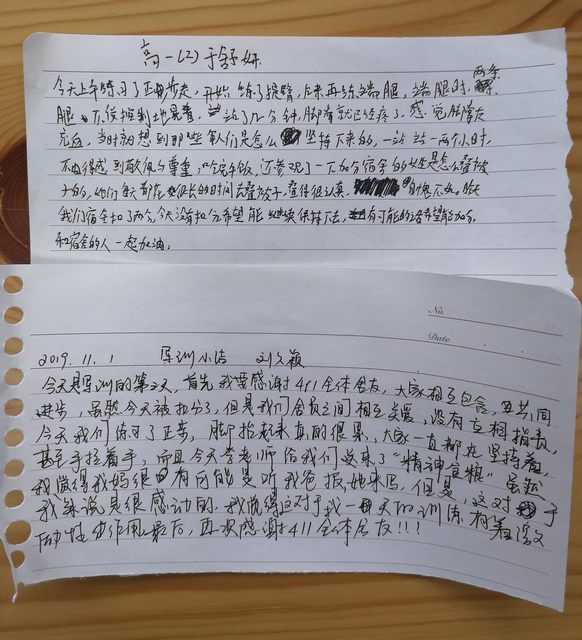 高一(2)于舒妍
今天上午练习了正步走，开始练了摆臂，后来再练踢腿，踢腿时，两条
腿不停控制地晃着，站了几分钟，脚脊就已经疼了，感觉脚掌在
充血，当时就想到那些军人们是怎么坚持下来的，一站站一两个小时，
不由得感到敬佩与尊重，吃完午饭，还参观了一下加分宿舍的女生是怎么叠被
子的，她们每天都花很长的时间去叠被子，叠得很认真，
我们宿舍扣了两分，今天没有扣分希望能继续保持下去，有可能的话希望能加分，
和宿舍的人一起加油。
No.
Date
2019.11.1 军训小结 刘文颖
今天是军训的第二天，首先我要感谢411全体舍友，大家相互包容，共同
进步，虽然今天被扣分了，但是我们舍员之间相互关爱，没有互相指责，
今天我们练习了正步，脚抬起来真的很累，大家一直都在坚持着，
甚至手拉着手，而且今天李老师给我们送来了“精神食粮”，虽然
我觉得我妈很有可能是听我爸拐她来写，但是，这对于
我来说是很感动的，我觉得这对于我一天的训练有着
最后，再次感谢411全体舍友!!!